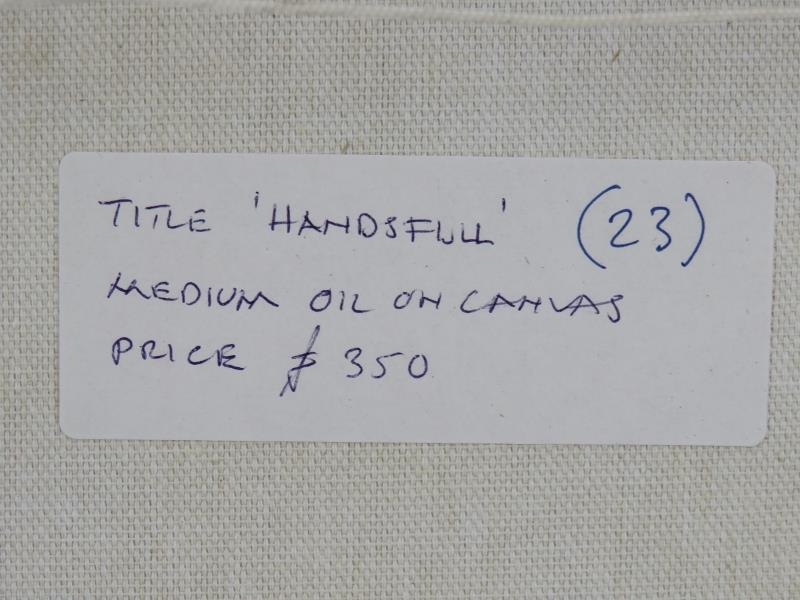 TITLE 'HANDSFULL' (23)
MEDIUM OIL ON CANVAS
PRICE $ 350